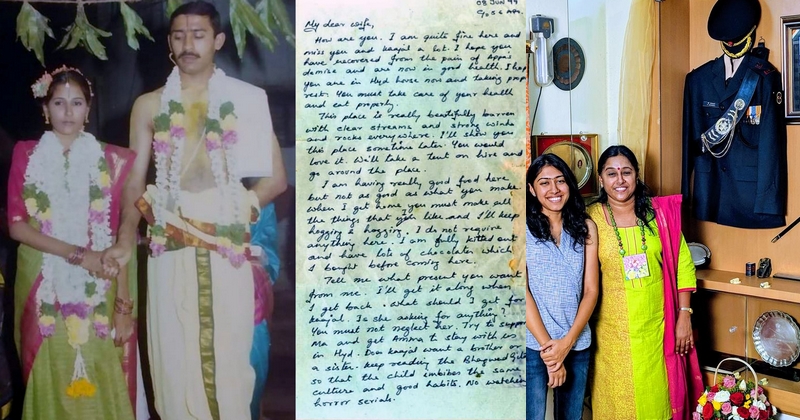 08 JUN 99
C/O 56 APO
My dear wife,
How are you. I am quite fine here and
miss you and kaajal a lot. I hope you
have recovered from the pain of Appa's
demise and are now in good health. I hope
you are in Hyd house now and taking prop
rest. You must take care of your health
and eat properly.
This place is really beautifully barren
with clear streams and strong winds
and rocks everywhere. I'll show you
this place sometime later. You would
love it. We'll take a tent on hire and
go around the place.
I am having really good food here
but not as good as what you make
when I get home you must make all
the things that you like and I'll keep
hogging & hogging. I do not require
anything here. I am fully kitted out
and have lots of chocolates which
I bought before coming here.
Tell me what present you want
from me. I'll get it along when
I get back. What should I get for
kaajal. Is she asking for anything?
You must not neglect her. Try to support
Ma and get Amma to stay with us
in Hyd. Does kaajal want a brother or
a sister. keep reading the Bhagwad Gita
so that the child imbibes the same
culture and good habits. No watching
horror serials.